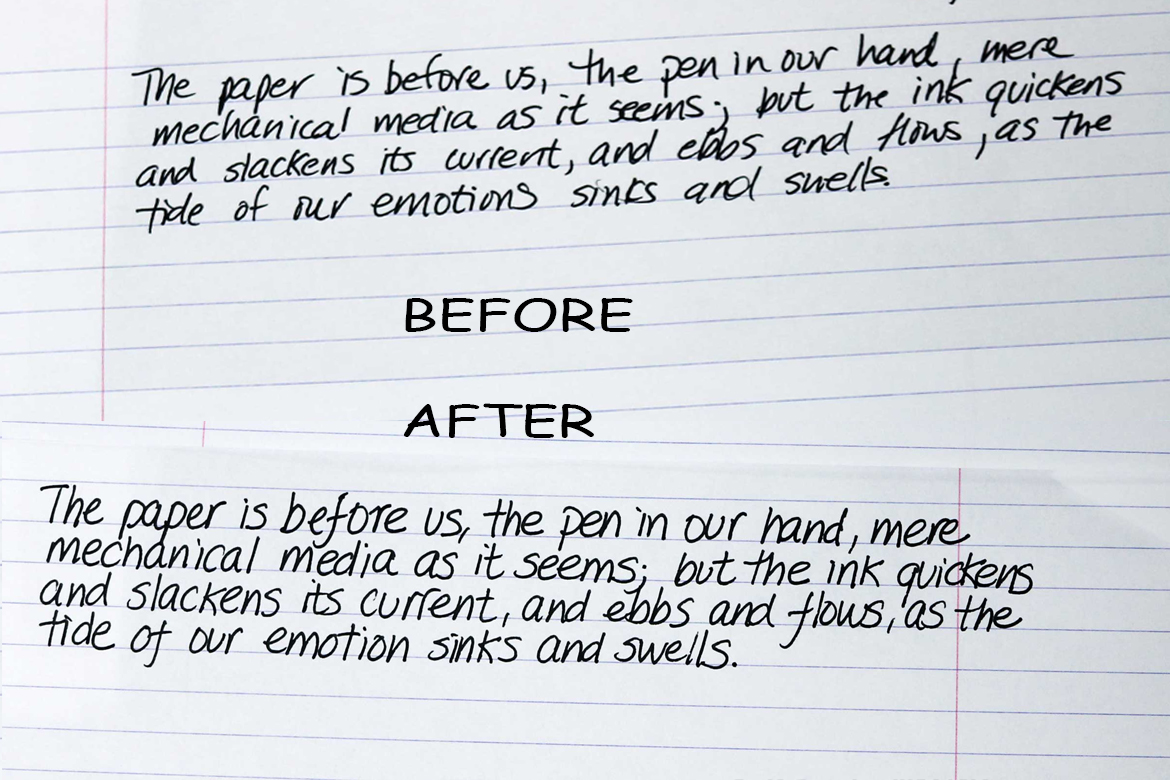 The paper is before us, the pen in our hand, mere
mechanical media as it seems; but the ink quickens
and slackens its current, and ebbs and flows, as the
tide of our emotions sinks and swells.
BEFORE
AFTER
The paper is before us, the pen in our hand, mere
mechanical media as it seems; but the ink quickens
and slackens its current, and ebbs and flows, as the
tide of our emotion sinks and swells.